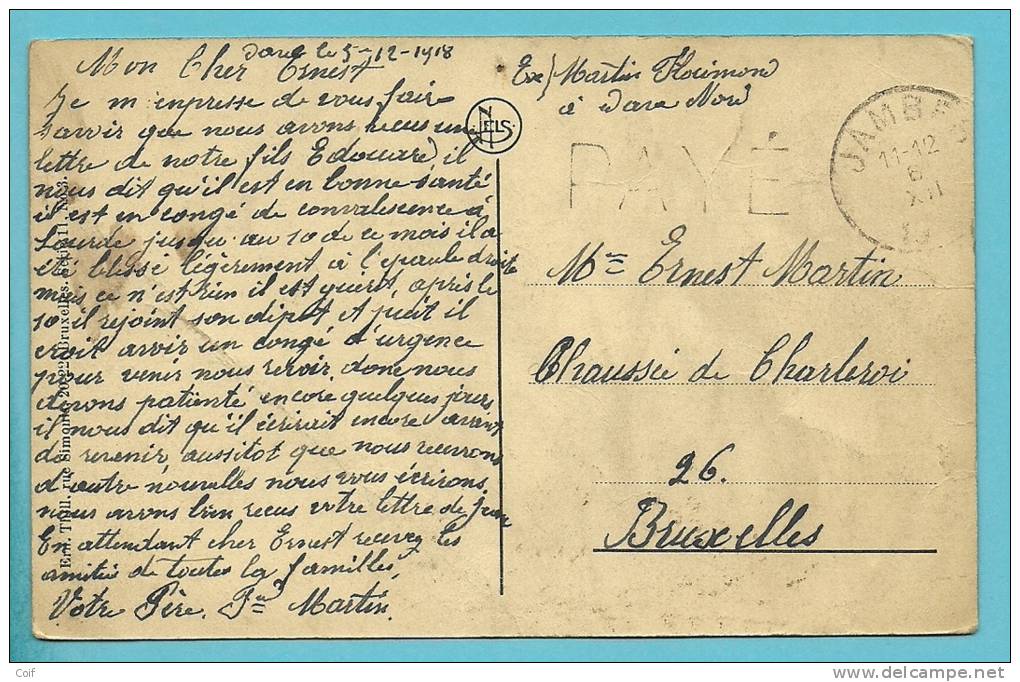 Dave le 5-12-1918
Mon Cher Ernest
Je m'enpresse de vous fair
savoir que nous avons recus un
lettre de notre fils Edouard, il
nous dit qu'il est en bonne santé
il est en congé de convalescence à
Lourde jusqu au 10 de ce mois il a
été blessé légèrement à l'epaule droite
mais ce n'est rien il est guérit, après le
10 il rejoint son dépot et puit il
croit avoir un congé d'urgence
pour venir nous revoir, donc nous
devons patienté encore quelques jours
il nous dit qu'il écrirait encore avant
de revenir, aussitot que nous recevrons
d'autre nouvelles nous vous écrirons
nous avons bien recus votre lettre de
En attendant cher Ernest recevez les
amitiés de toutes la familles,
Votre Père. Martin
Ex) Martin
à Dave Nord
NELS
PAYÉ
JAMBES
11-12
6
XII
Mr Ernest Martin
Chaussée de Charleroi
26.
Bruxelles
Ern. Thill, rue Simonis, 20-22, Bruxelles.
Coif
www.delcampe.net